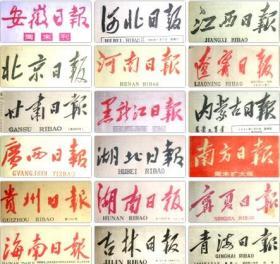 安徽日報
周末刊
河北日报
HEBEI RIBAO
江西日报
JIANGXI RIBAO
北京日报
河南日報
HENAN RIBAO
辽宁日报
LIAONING RIBAO
甘肃日報
GANSU RIBAO
黑龙江日报
内蒙古日报
廣西日報
GVANGJSIH YIZBAU
湖北日報
HUBEI RIBAO
南方日报
周末扩大版
貴州日報
GUIZHOU RIBAO
湖南日報
HUNAN RIBAO
寧夏日報
NINGXIA RIBAO
海南日报
HAINAN RIBAO
吉林日报
JILIN RIBAO
青海日報
QINGHAI RIBAO